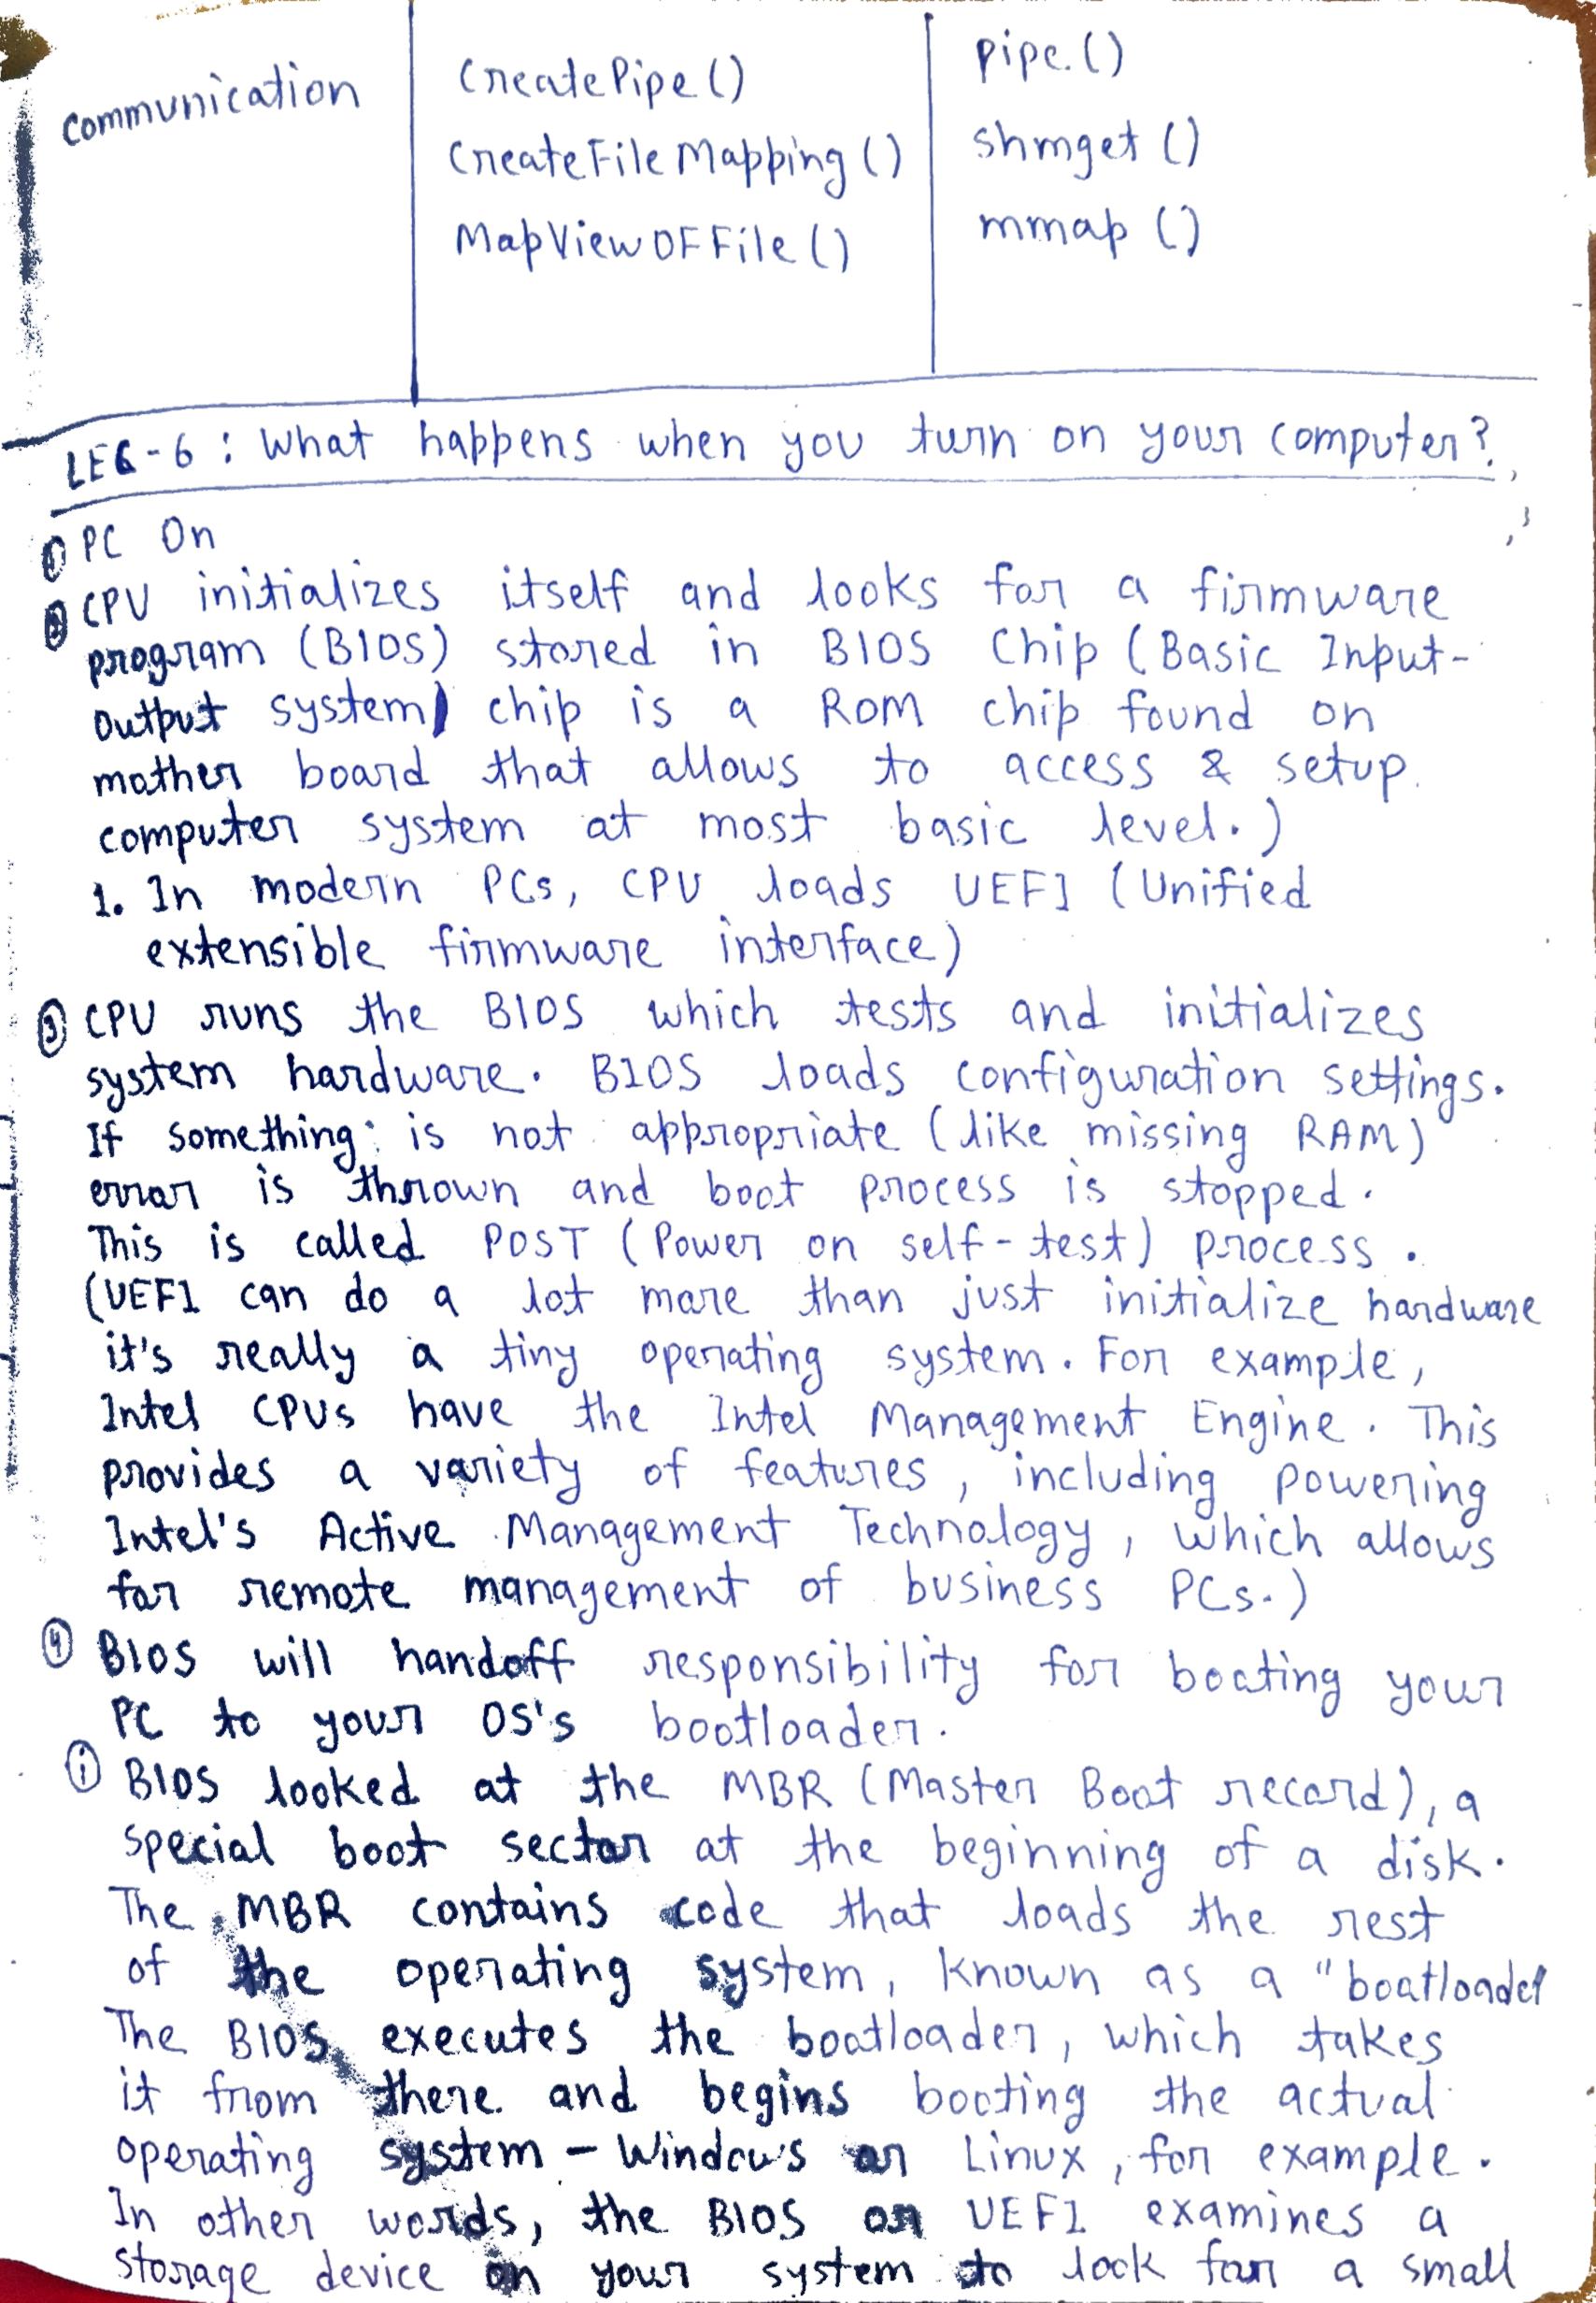 communication
CreatePipe()
CreateFileMapping()
MapViewOFFile()
pipe()
shmget()
mmap()
LEC-6: What happens when you turn on your computer?
① PC On
② CPU initializes itself and looks for a firmware
program (BIOS) stored in BIOS Chip (Basic Input-
Output system) chip is a ROM chip found on
mother board that allows to access & setup
computer system at most basic level.)
1. In modern PCs, CPU loads UEFI (Unified
extensible firmware interface)
③ CPU runs the BIOS which tests and initializes
system hardware. BIOS loads configuration settings.
If something is not appropriate (like missing RAM)
error is thrown and boot process is stopped.
This is called POST (Power on self-test) process.
(UEFI can do a lot more than just initialize hardware
it's really a tiny operating system. For example,
Intel CPUs have the Intel Management Engine. This
provides a variety of features, including powering
Intel's Active Management Technology, which allows
for remote management of business PCs.)
④ BIOS will handoff responsibility for booting your
PC to your OS's bootloader.
① BIOS looked at the MBR (Master Boot record), a
special boot sector at the beginning of a disk.
The MBR contains code that loads the rest
of the operating system, known as a "bootloader
The BIOS executes the bootloader, which takes
it from there and begins booting the actual
operating system - Windows or Linux, for example.
In other words, the BIOS or UEFI examines a
storage device on your system to look for a small